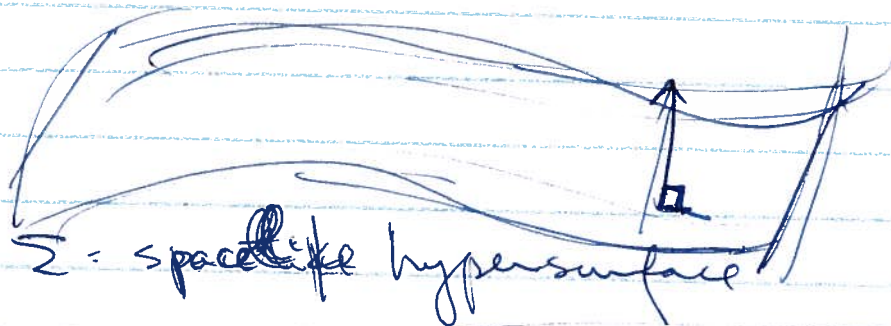 Σ = spacelike hypersurface